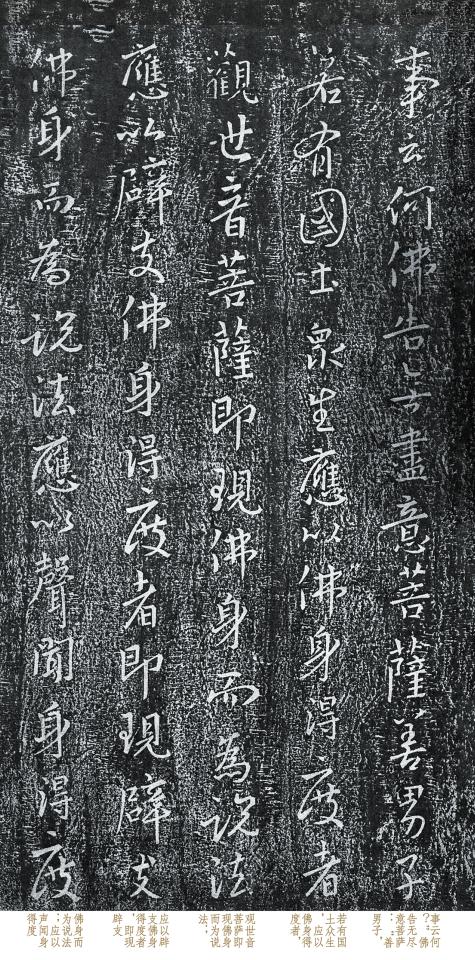 事云何佛告无盡意菩薩善男子
若有國土衆生應以佛身得度者
觀世音菩薩即現佛身而為説法
應以辟支佛身得度者即現辟支
佛身而為説法應以聲聞身得度
事云何
？佛
告无尽
意菩萨
：善
男子，
若有国
土众生
，应以
佛身得
度者，
观世音
菩萨即
现佛身
而为说
法；
应以辟
支佛身
得度者
，即现
辟支
佛身而
为说法
；应以
声闻身
得度